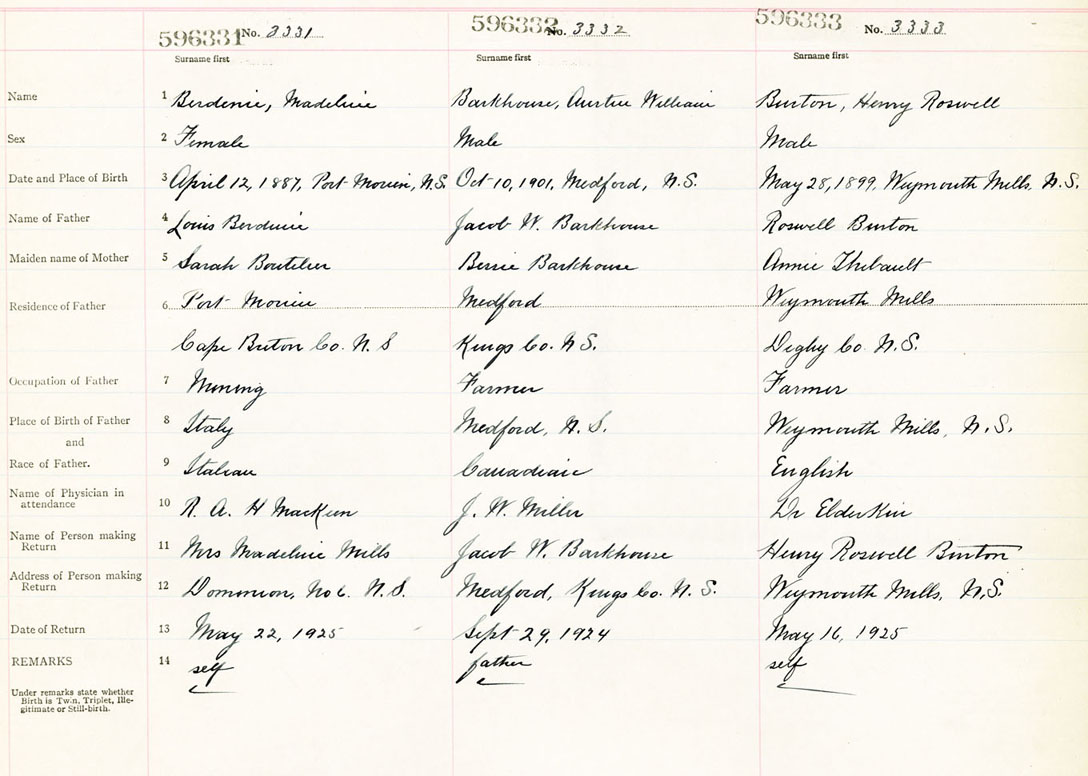 596331 No. 3331 596332 No. 3332 596333 No. 3333
Surname first Surname first Surname first
Name 1 Berdenie, Madeline Barkhouse, Austin William Burton, Henry Roswell
Sex 2 Female Male Male
Date and Place of Birth 3 April 12, 1887, Port Morien, N.S. Oct 10, 1901, Medford, N.S. May 28, 1899, Weymouth Mills, N.S.
Name of Father 4 Louis Jacob W. Barkhouse Roswell Burton
Maiden name of Mother 5 Sarah Boutilier Bessie Barkhouse Annie Thibault
Residence of Father 6 Port Morien Medford Weymouth Mills
Cape Breton Co. N.S Kings Co. N.S. Digby Co. N.S.
Occupation of Father 7 Mining Farmer Farmer
Place of Birth of Father 8 Italy Medford, N.S. Weymouth Mills, N.S.
and
Race of Father. 9 Italian Canadian English
Name of Physician in
attendance 10 R. A. H MacKeen J. W. Miller Dr Elderkin
Name of Person making
Return 11 Mrs Madeline Mills Jacob W. Barkhouse Henry Roswell Burton
Address of Person making
Return 12 Dominion, No 6. N.S. Medford, Kings Co. N.S. Weymouth Mills, N.S.
Date of Return 13 May 22, 1925 Sept 29, 1924 May 16, 1925
REMARKS 14 self father self
Under remarks state whether
Birth is Twin, Triplet, Ille-
gitimate or Still-birth.